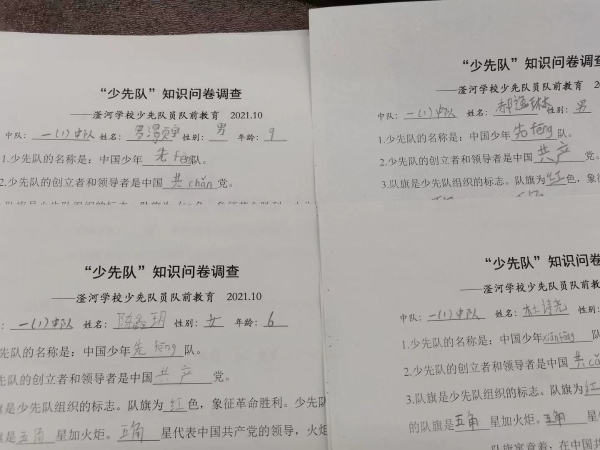 “少先队”知识问卷调查
——滢河学校少先队员队前教育 2021.10
中队：一(1)中队 姓名： 性别：男 年龄：9
1.少先队的名称是：中国少年 先feng 队。
2.少先队的创立者和领导者是中国 共chǎn 党。
“少先队”知识问卷调查
——滢河学校少先队员队前教育 2
中队：一(1)中队 姓名： 性别：男
1.少先队的名称是：中国少年 先feng 队。
2.少先队的创立者和领导者是中国 共产 党。
3.队旗是少先队组织的标志。队旗为 红 色，象
“少先队”知识问卷调查
——滢河学校少先队员队前教育 2021.10
：一(1)中队 姓名：陈 玥 性别：女 年龄：6
先队的名称是：中国少年 先feng 队。
先队的创立者和领导者是中国 共产 党。
旗是少先队组织的标志。队旗为 红 色，象征革命胜利。少先队
旗是 五角 星加火炬。五角 星代表中国共产党的领导，火炬
“少先队”知识问卷
——滢河学校少先队员队前
中队：一(1)中队 姓名：杜
1.少先队的名称是：中国少年 xiānfēng 队
2.少先队的创立者和领导者是中国 共cǎ
3.队旗是少先队组织的标志。队旗为 红
的队旗是 五角 星加火炬。五角 星
队旗寓意着，在中国共